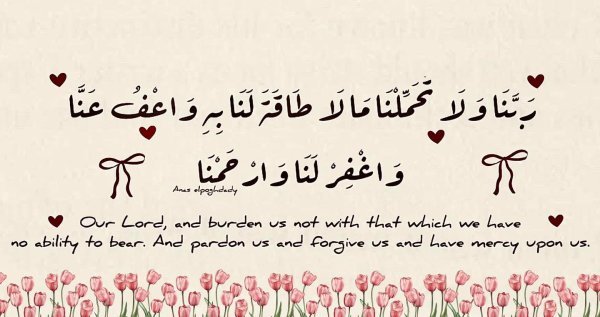 رَبَّنَا وَلَا تُحَمِّلْنَا مَا لَا طَاقَةَ لَنَا بِهِ وَاعْفُ عَنَّا
وَاغْفِرْ لَنَا وَارْحَمْنَا
Anas elpoghdady
Our Lord, and burden us not with that which we have
no ability to bear. And pardon us and forgive us and have mercy upon us.